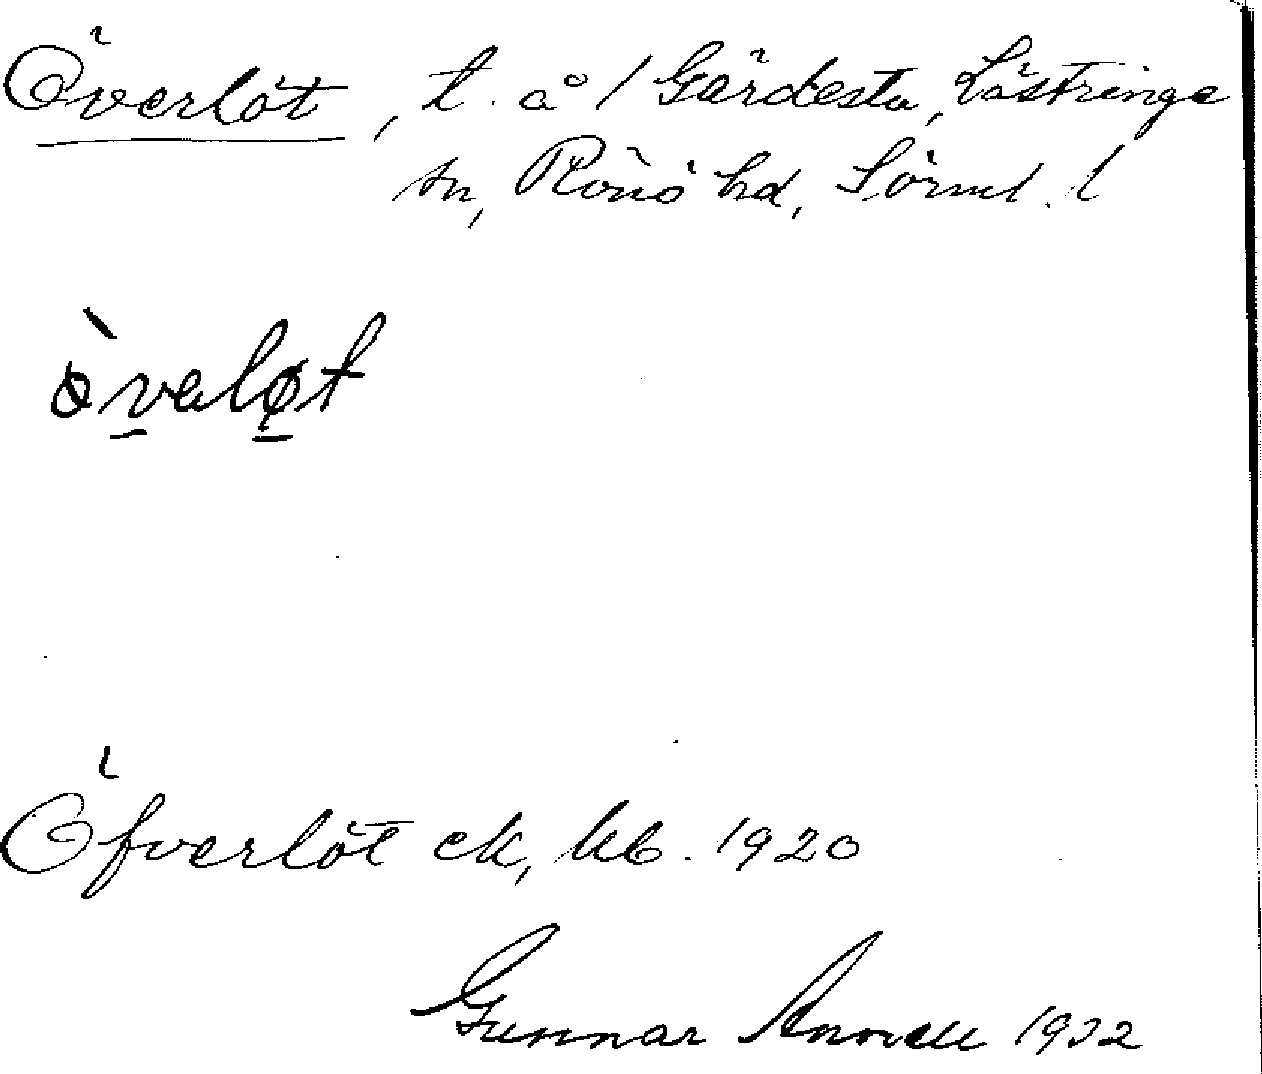 Överlöt, t. å / Gärdesta, Lästringe
sn, Rönö hd, Sörml. l
øvaløt
Öfverlöt ek, kb. 1920
Gunnar Annell 1932